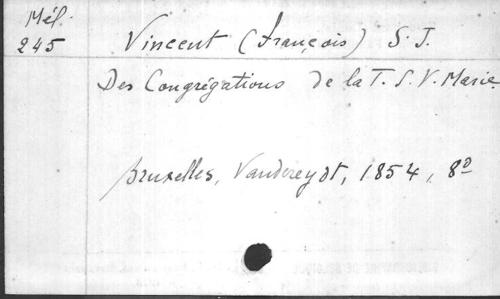 Mél.
245
Vincent (François) S. J.
Des Congrégations de la T. S. V. Marie
Bruxelles, Vandereydt, 1854, 8º